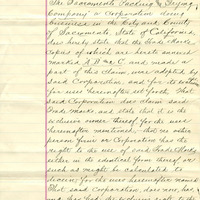 The Sacramento Packing & Drying
Company a Corporation doing
business in the City and County
of Sacramento, State of California
does hereby state that the Trade Marks
copies of which are hereto annexed
marked A B & C and made a
part of this Claim, were adopted by
said Corporation, and for its
for uses hereinafter set forth. That
said Corporation does claim said
Trade Marks and state that it is the
exclusive owner thereof for the uses
hereinafter mentioned, that no other
person firm or Corporation has the
right to the use of said Trade Marks
either in the identical form thereof or
such as might be calculated to
deceive for the uses hereinafter named
That said Corporation does now, has
and has had the exclusive right to the